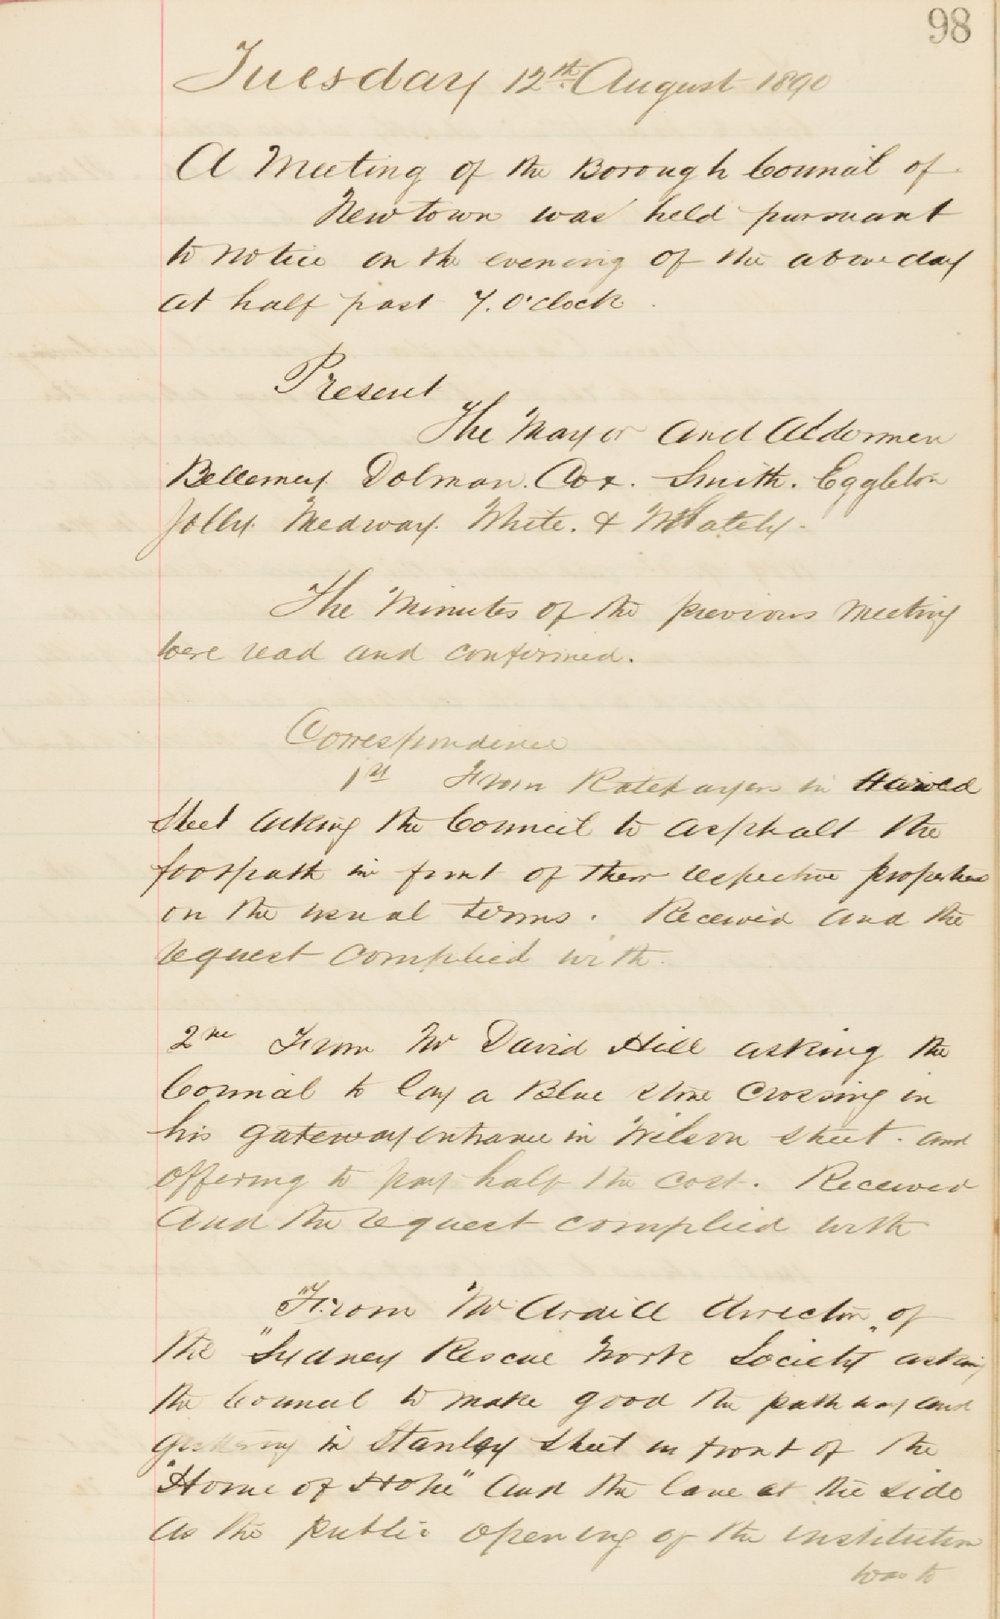 98
Tuesday 12th August 1890
A Meeting of the Borough Council of
Newtown was held pursuant
to notice on the evening of the above day
at half past 7. O'clock.
Present
The Mayor and Aldermen
Bellemey. Dolman. Cox. Smith. Eggleton
Jolly. Medway. White. &
The Minutes of the previous Meeting
were read and confirmed.
Correspondence
1st From Ratepayers in
Street asking the Council to asphalt the
footpath in front of their respective properties
on the usual terms. Received and the
request complied with.
2nd From Mr David Hill asking the
Council to lay a Blue stone crossing in
his gateway entrance in Wilson Street. and
offering to pay half the cost. Received
and the request complied with
From Mr Ardill director of
the "Sydney Rescue Work Society" asking
the Council to make good the pathway and
guttering in Stanley Street in front of the
"Home of Hope" and the lane at the side
as the public opening of the institution
was to